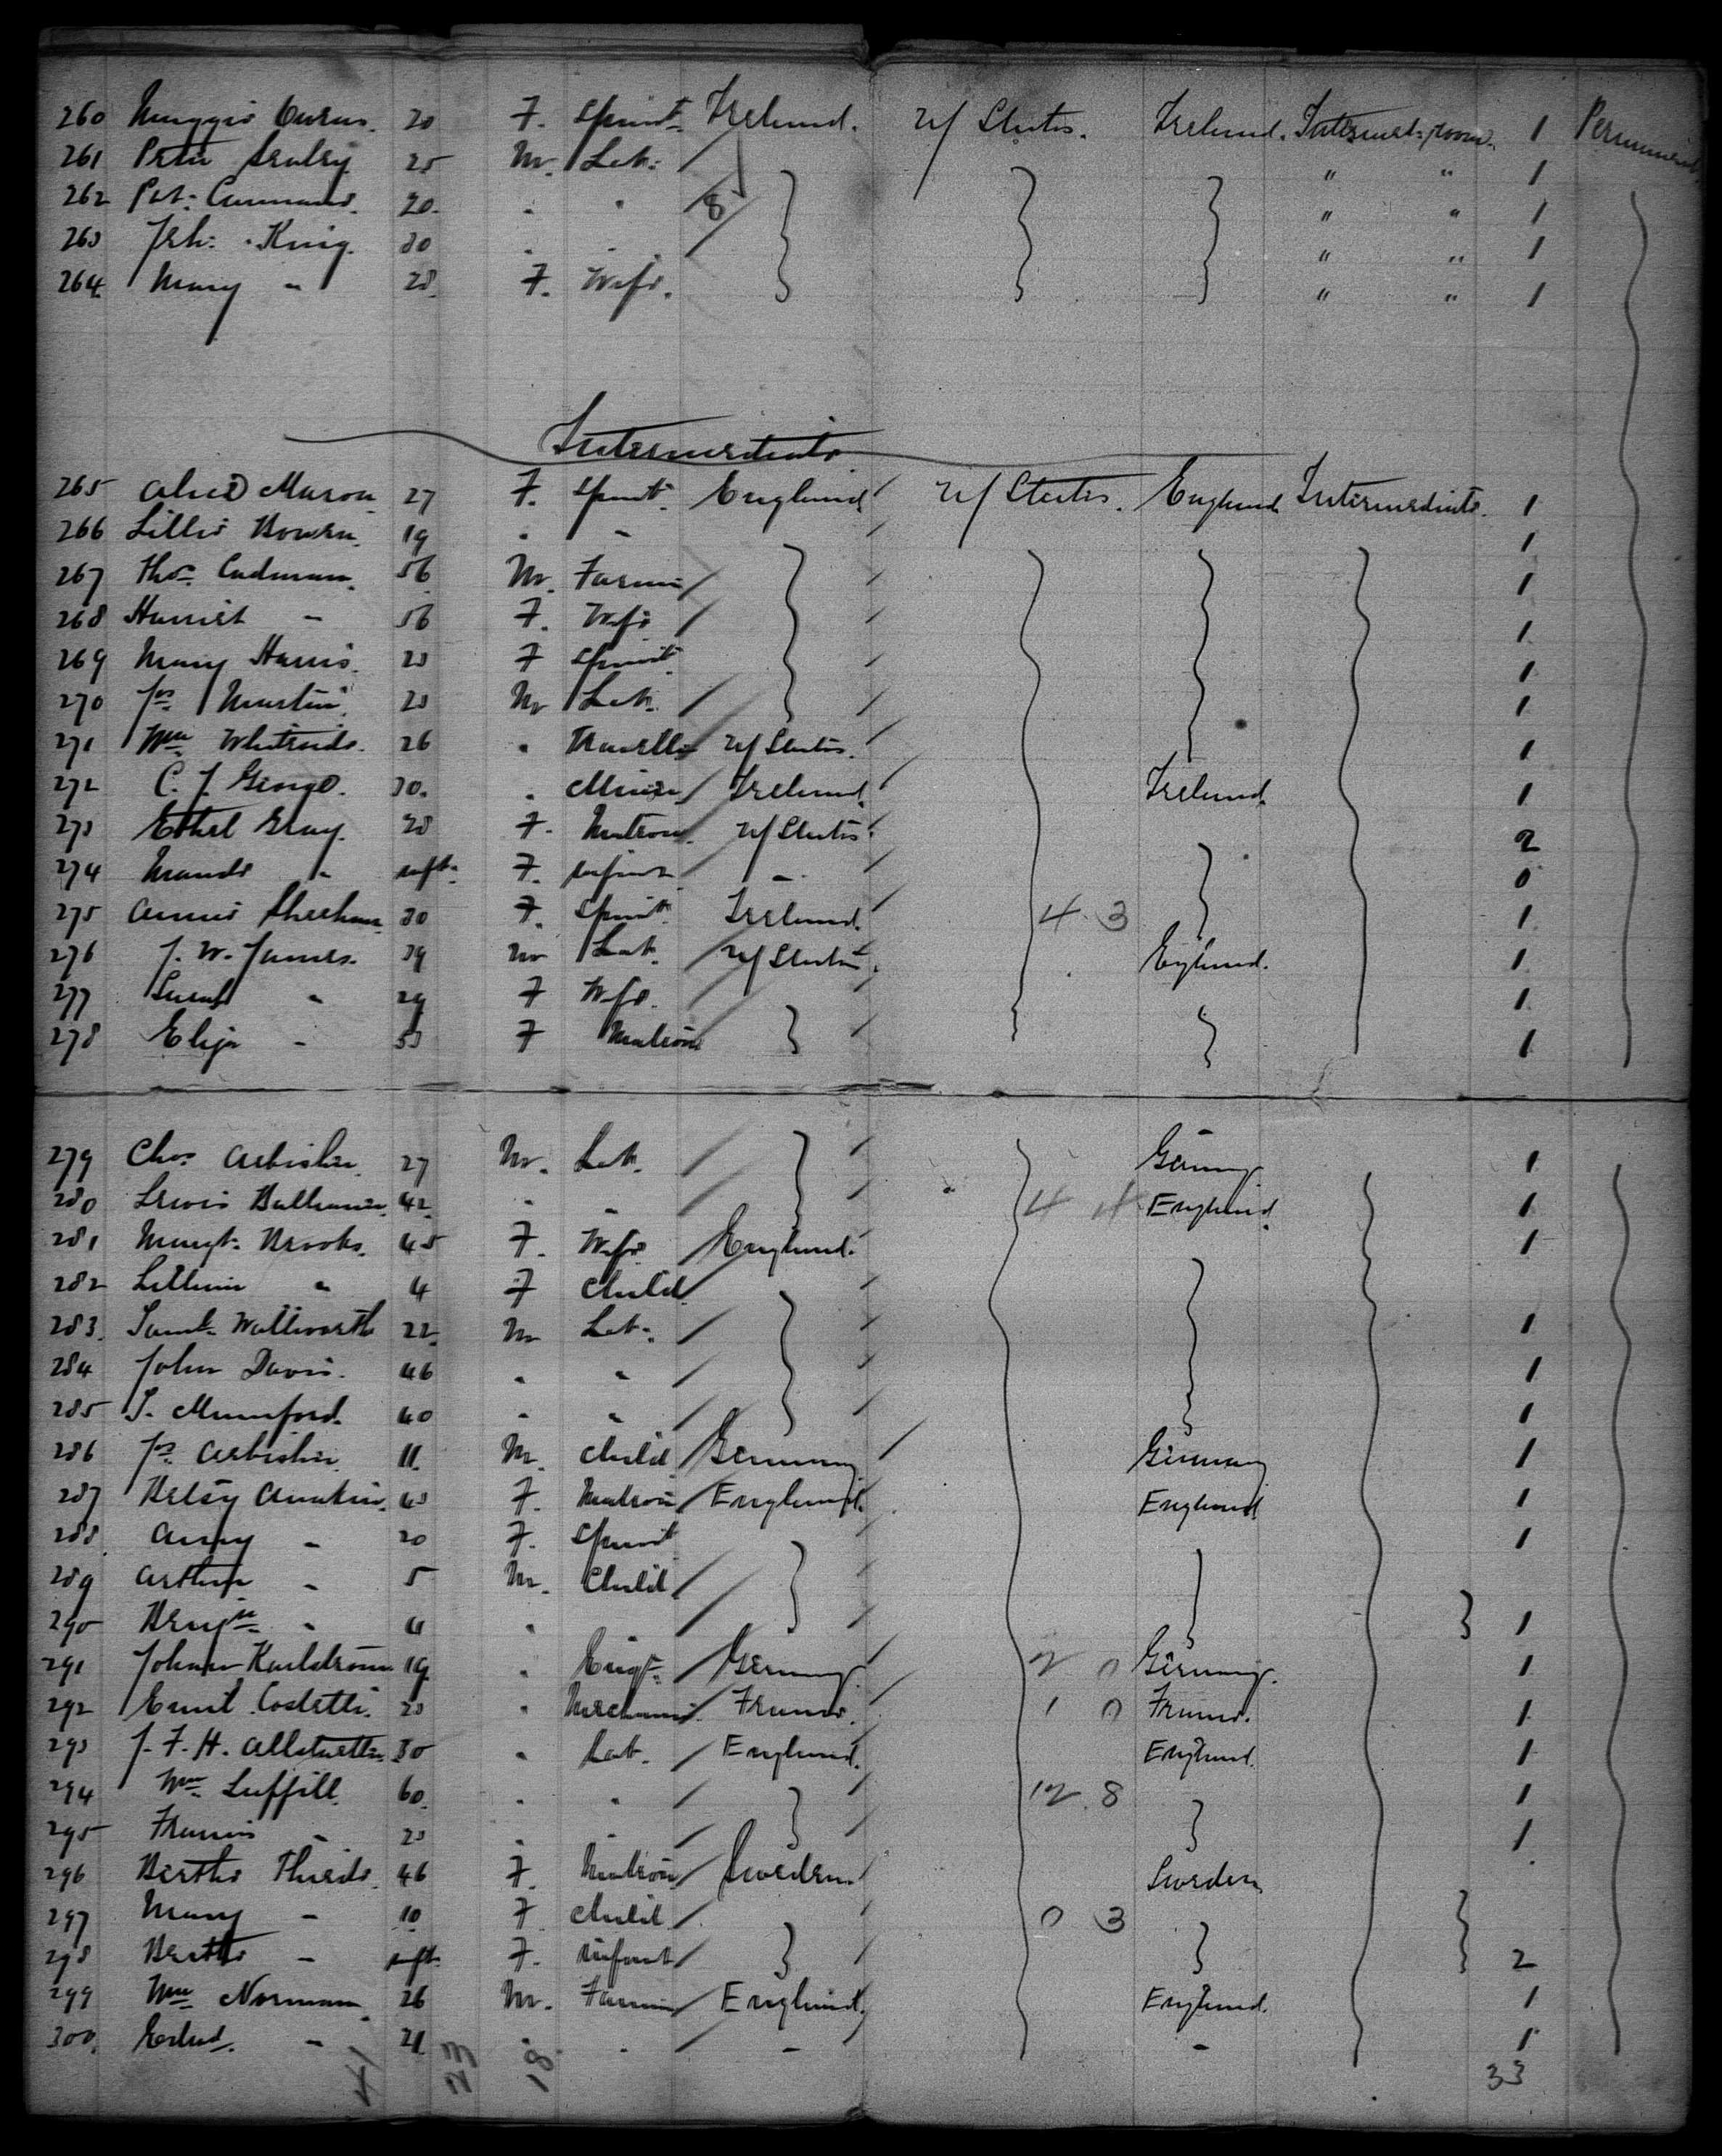 260 Maggie Curran 20 F. Spinst. Ireland. U/States. Ireland. Intermed. room. 1 Permanent
261 Peter 25 M. Lab: " " 1
262 Pat: 20. " " 8 " " 1
263 Jnh: King. 30 " " " " 1
264 Mary " 28 F. Wife. " " 1
Intermediate
265 Alice Mason 27 F. Spinst. England U/States. England Intermediate. 1
266 Lillie Bowen. 19 " " 1
267 Thos. Cadman. 56 M. Farmer 1
268 Harriet " 56 F. Wife 1
269 Mary Harris. 23 F Spinst 1
270 Jas. Martin. 23 M Lab. 1
271 Wm Whiteside. 26 " Traveller U/States. 1
272 C. J. George. 30. " Miner Ireland. Ireland. 1
273 Ethel Gray. 28 F. Matron. U/States. 2
274 Maude " inft. F. infant " 0
275 Annie Sheehan 30 F. Spinst. Ireland. 4 3 1
276 J. W. James. 39 M Lab. U/States. England. 1
277 Sarah " 29 F Wife. 1
278 Eliza " 53 F Matron 1
279 Chas. Arbister 27 M. Lab. Germany 1
280 Lewis 42 " " 4 4 England. 1
281 Margt. Brooks. 45 F. Wife England. 1
282 Lillian " 4 F Child
283. Saml. Wallworth 22 M Lab. 1
284 John Davis. 46 " " 1
285 S. Mumford. 40 " " 1
286 Jas. Arbister 11. M. Child Germany Germany 1
287 Betsy 43 F. Matron England. England 1
288 Amy " 20 F. Spinst 1
289 Arthur " 5 M. Child
290 Benjn. " 4 " 1
291 Johan Karlstrom 19 " Engr. Germany 2 0 Germany. 1
292 Emil Costelli. 23 " Merchant. France. 1 0 France. 1
293 J. F. H. 30 " Lab. England. England. 1
294 Wm Luffill. 60. " " 12 8 1
295 Francis " 23 " " 1
296 Bertha 46 F. Matron Sweden Sweden
297 Mary " 10 F Child 0 3
298 Bertha " inft. F. infant 2
299 Wm Norman 26 M. Farmer England. England. 1
300. " 21 " " " " 1
41 23 18 33